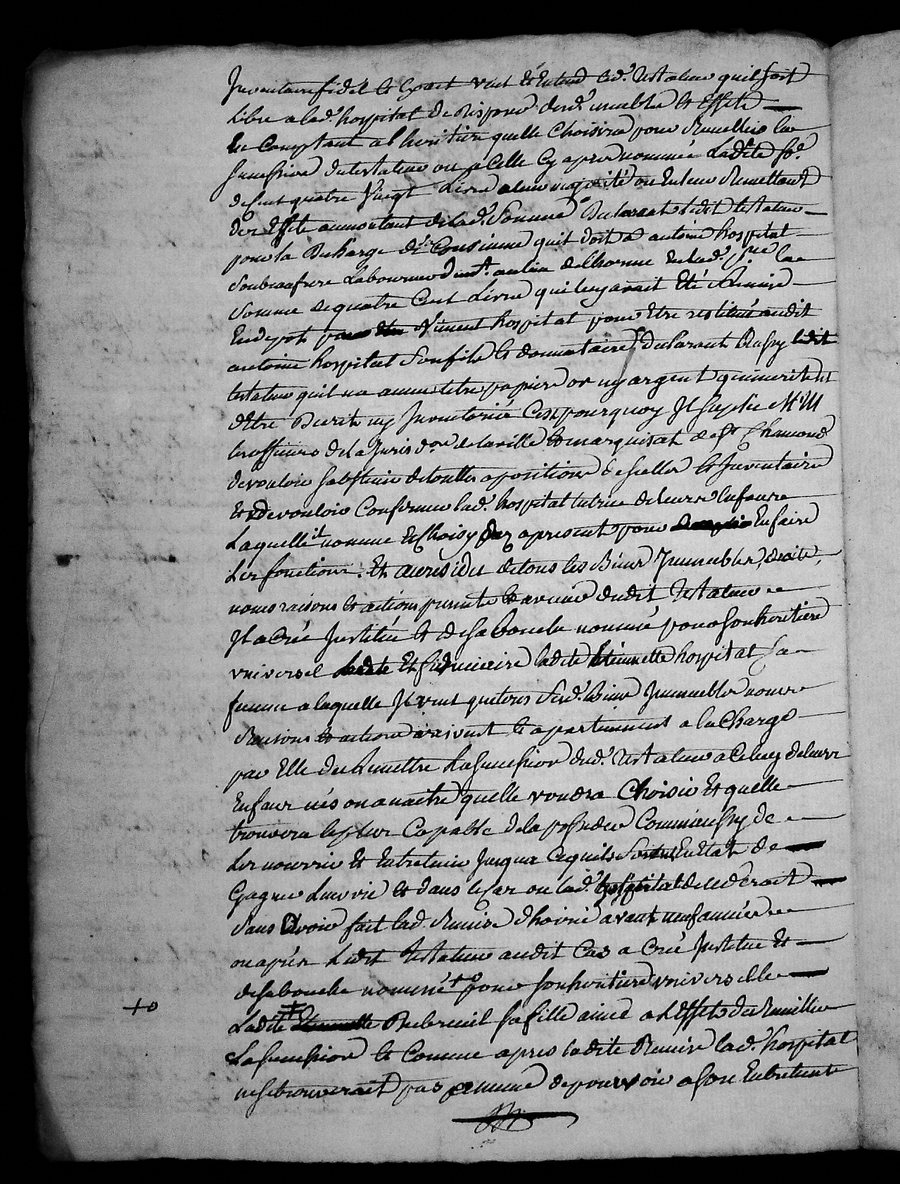 Inventaire fidel et Exact veut et Entend led.t testateur quil soit
Libre a lad.e hospital de disposer desd. meubles et Effets
En Comptant a l heritier quelle Choisira pour Recueillir la
succession du testateur ou a Celle Cy apres nommée Ladite so.e
de quatre Vingt Livre a leur majorité ou En leur Remettant
des Effets au montant de lad.e Somme Declarant ledit testateur
pour la Decharge de Consience quil doit a antoine hospital
son beaufrere Laboureur
somme de quatre Cent Livre qui luy avoit Eté Remise
En depot par Vincent hospital pour Etre restitué audit
antoine hospital son fils et donnataire, declarant Aussy ledit
testateur quil na aucun titre papier or ny argent qui meritent
d Etre Decrit ny Inventorié Cest pourquoy Il suplie M.M
les officiers de la Jurisd.on de la ville et marquisat de S.t Chamond
de vouloir sabstenir de toutte aposition de scellés et Inventaire
Et de vouloir Confirmer lad.e hospital tutrice de leurs Enfans
Laquelle il nomme et Choisy des apresent pour En faire
Les fonctions. Et au residu de tous les Biens Immeubles, droits,
noms raisons et actions presents et avenir dudit testateur
Il a Créé Institué et de sa bouche nommé pour son heritiere
universel Et fiduciaire ladite Etiennette hospital sa
femme a laquelle Il veut que tous sesd. biens Immeubles noms
Raisons et actions arrivent et apartiennent a la Charge
par Elle de Remettre La succession dud.t testateur a Celuy de leurs
Enfans nés ou a naitre quelle voudra Choisir Et quelle
trouvera le plus Capable de la posseder Comme aussy de
Les nourrir Et Entretenir Jusqua Ce quils soient En Etat de
Gagner Leur vie et dans le Cas ou lad.e hospital decederait
sans avoir fait lad. Remise d hoirie avant
ou après Ledit testateur audit Cas a Créé Institué Et
de sa bouche nommé pour son heritiere universelle
Ladite Dubreuil sa fille ainée a l Effet de Recueillir
La succession et Comme apres ladite Remise lad.e hospital
ne se trouverait pas de pourvoir a son Entretient
+o